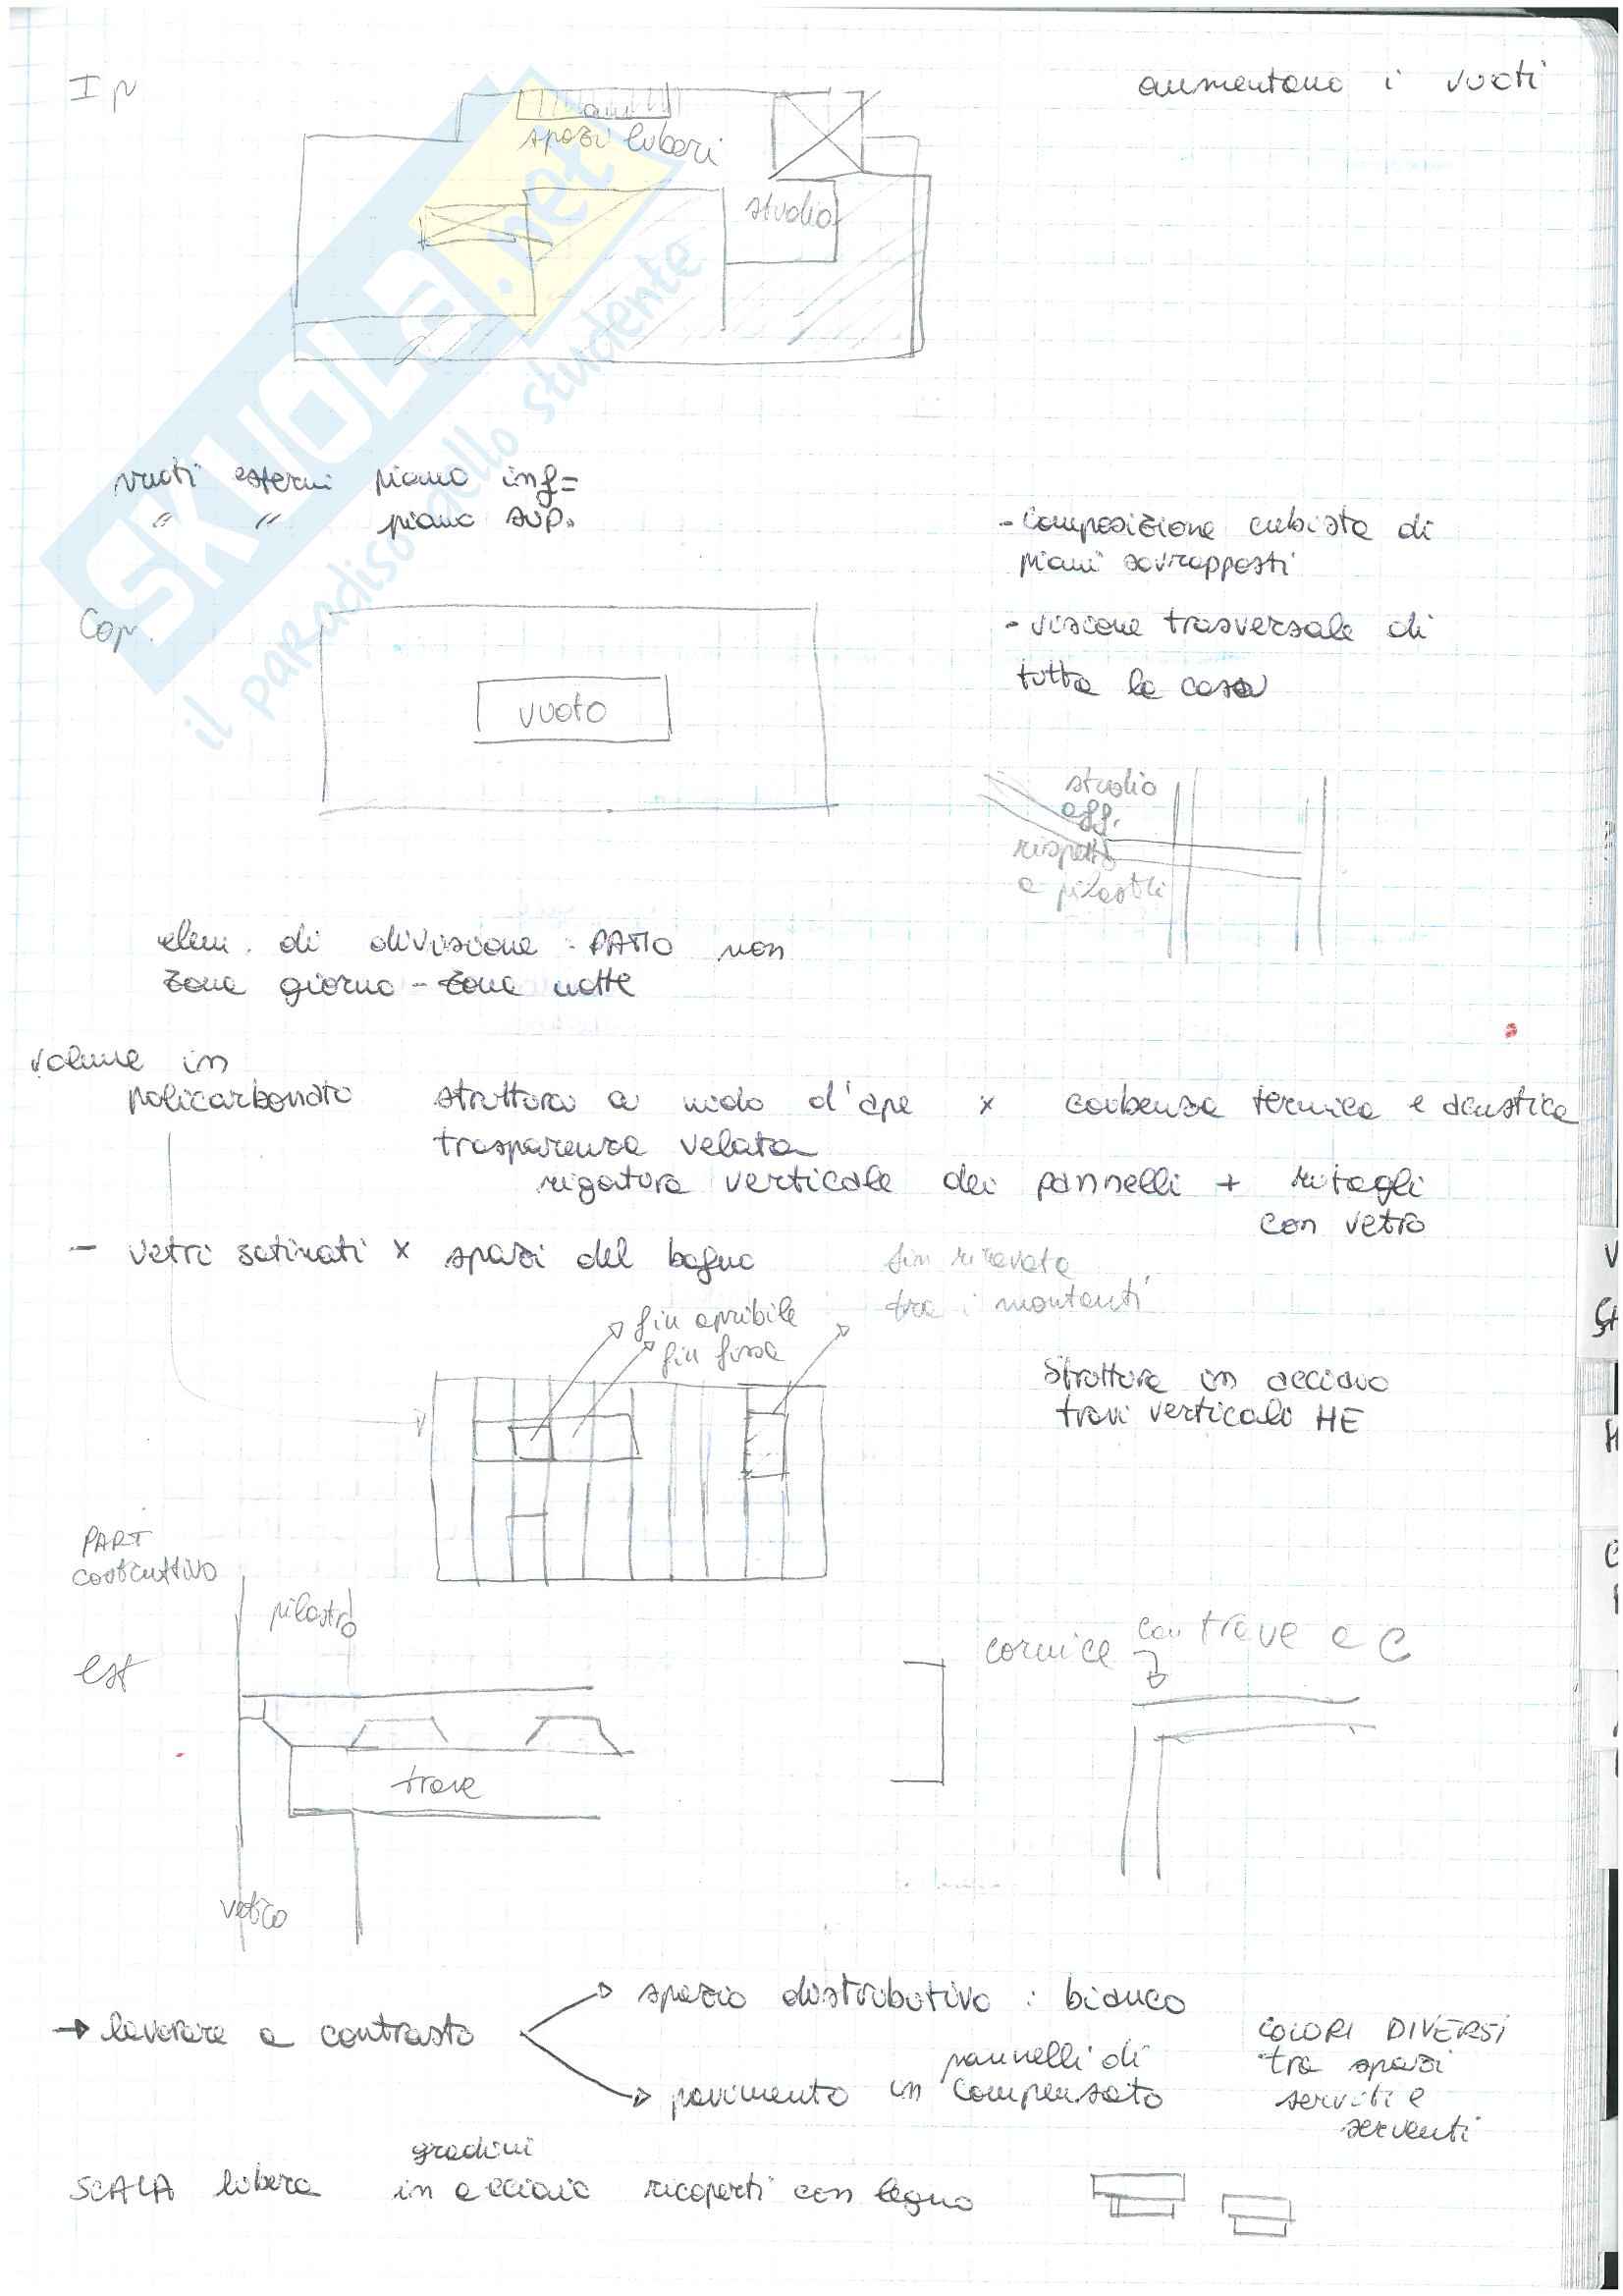 I p
aumentano i vuoti
spazi liberi
studio
SKUOLA.net
il paradiso dello studente
vuoti esterni piano inf =
" " piano sup.
- composizione cubista di
piani sovrapposti
Cop.
- visione trasversale di
tutta la casa
vuoto
studio
aff.
rispetto
a pilastri
elem. di divisione - PATIO non
zona giorno - zona notte
volume in
policarbonato struttura a nido d'ape x coibenza termica e acustica
trasparenza velata
rigatura verticale dei pannelli + ritagli
con vetro
- vetri satinati x spazi del bagno
fin ricavata
tra i montanti
fin apribile
fin fissa
struttura in acciaio
travi verticali HE
PART
costruttivo
pilastro
est
cornice con trave a C
trave
vetro
→ lavorare a contrasto
spazio distributivo : bianco
pavimento in pannelli di
compensato
COLORI DIVERSI
tra spazi
serviti e
serventi
SCALA libera gradini
in acciaio ricoperti con legno